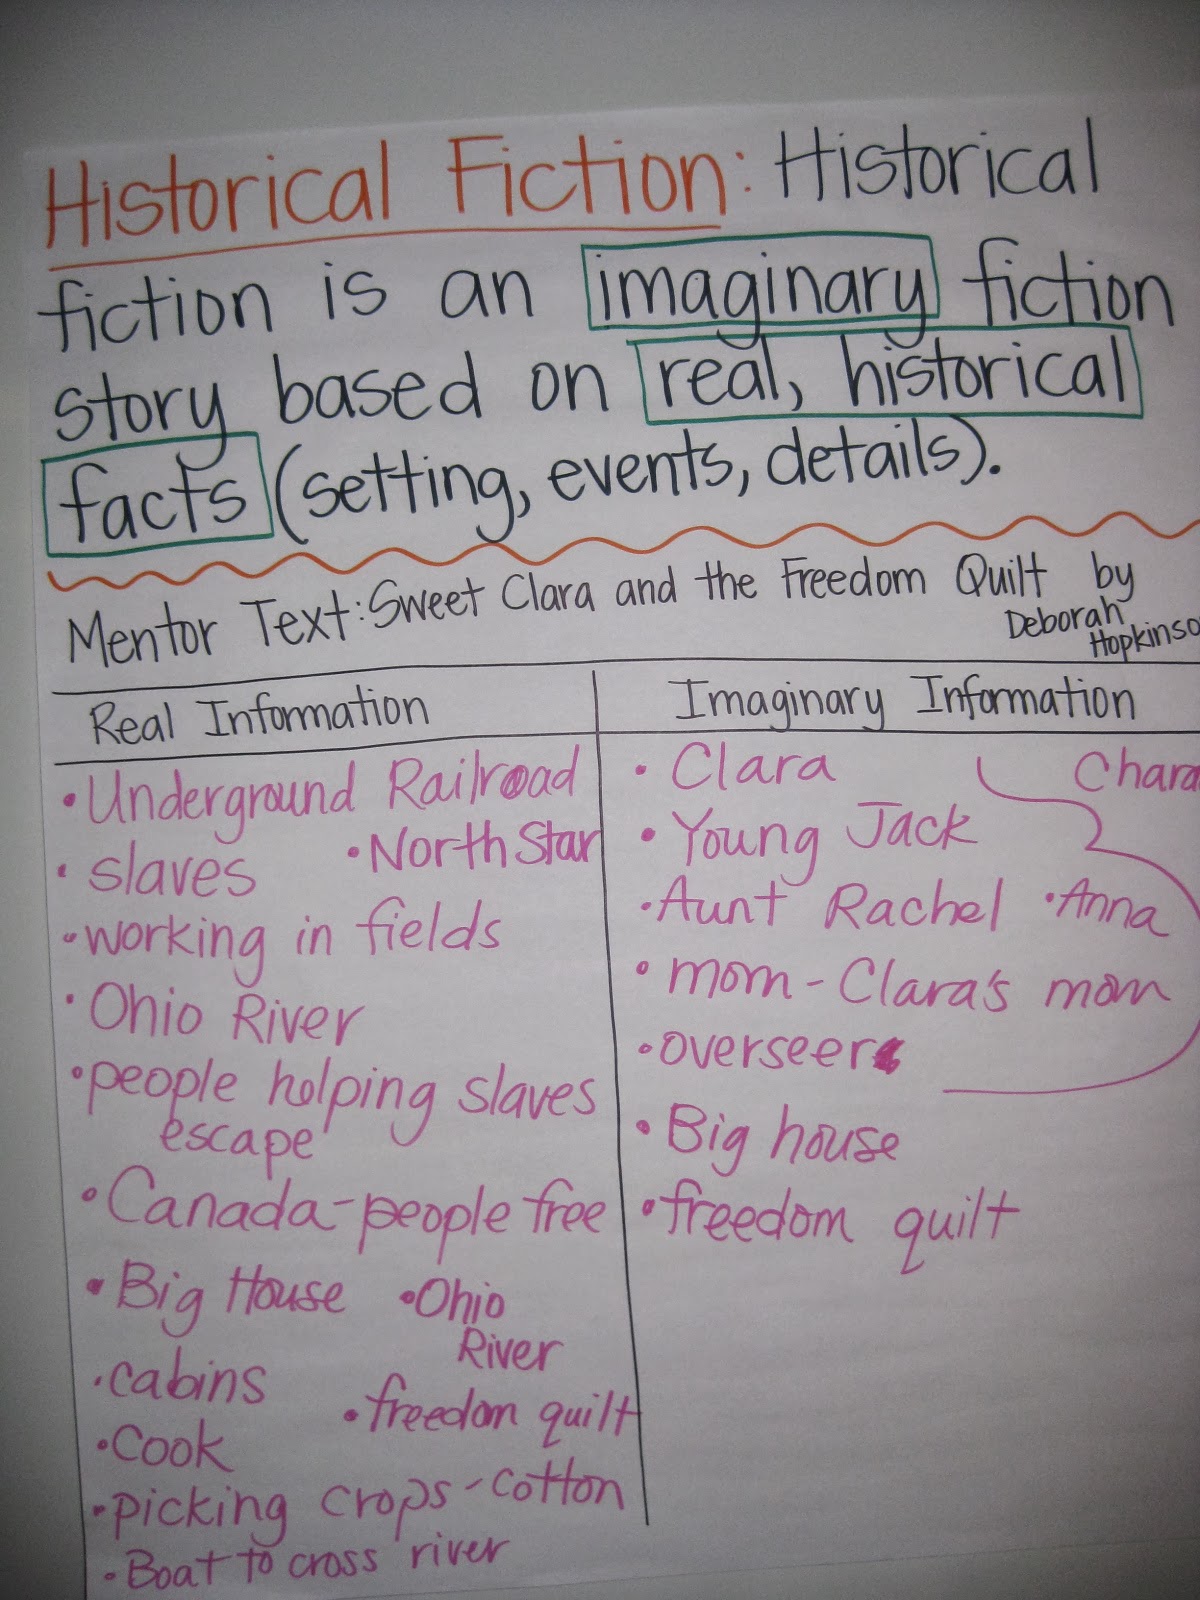 Historical Fiction: Historical
fiction is an imaginary fiction
story based on real, historical
facts (setting, events, details).
Mentor Text: Sweet Clara and the Freedom Quilt by
Deborah
Hopkinso
Real Information
• Underground Railroad
• North Star
• slaves
• working in fields
• Ohio River
• people helping slaves
escape
• Canada - people free
• Big House
• Ohio
River
• cabins
• freedom quilt
• Cook
• picking crops - cotton
• Boat to cross river
Imaginary Information
• Clara
Chara
• Young Jack
• Aunt Rachel • Anna
• mom - Clara's mom
• overseer
• Big house
• freedom quilt